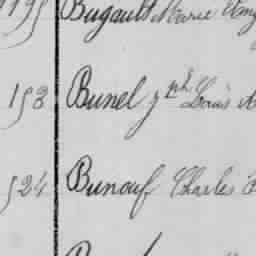 Bugault Marie
153 Bunel Jph Louis A
524 Bunouf Charles